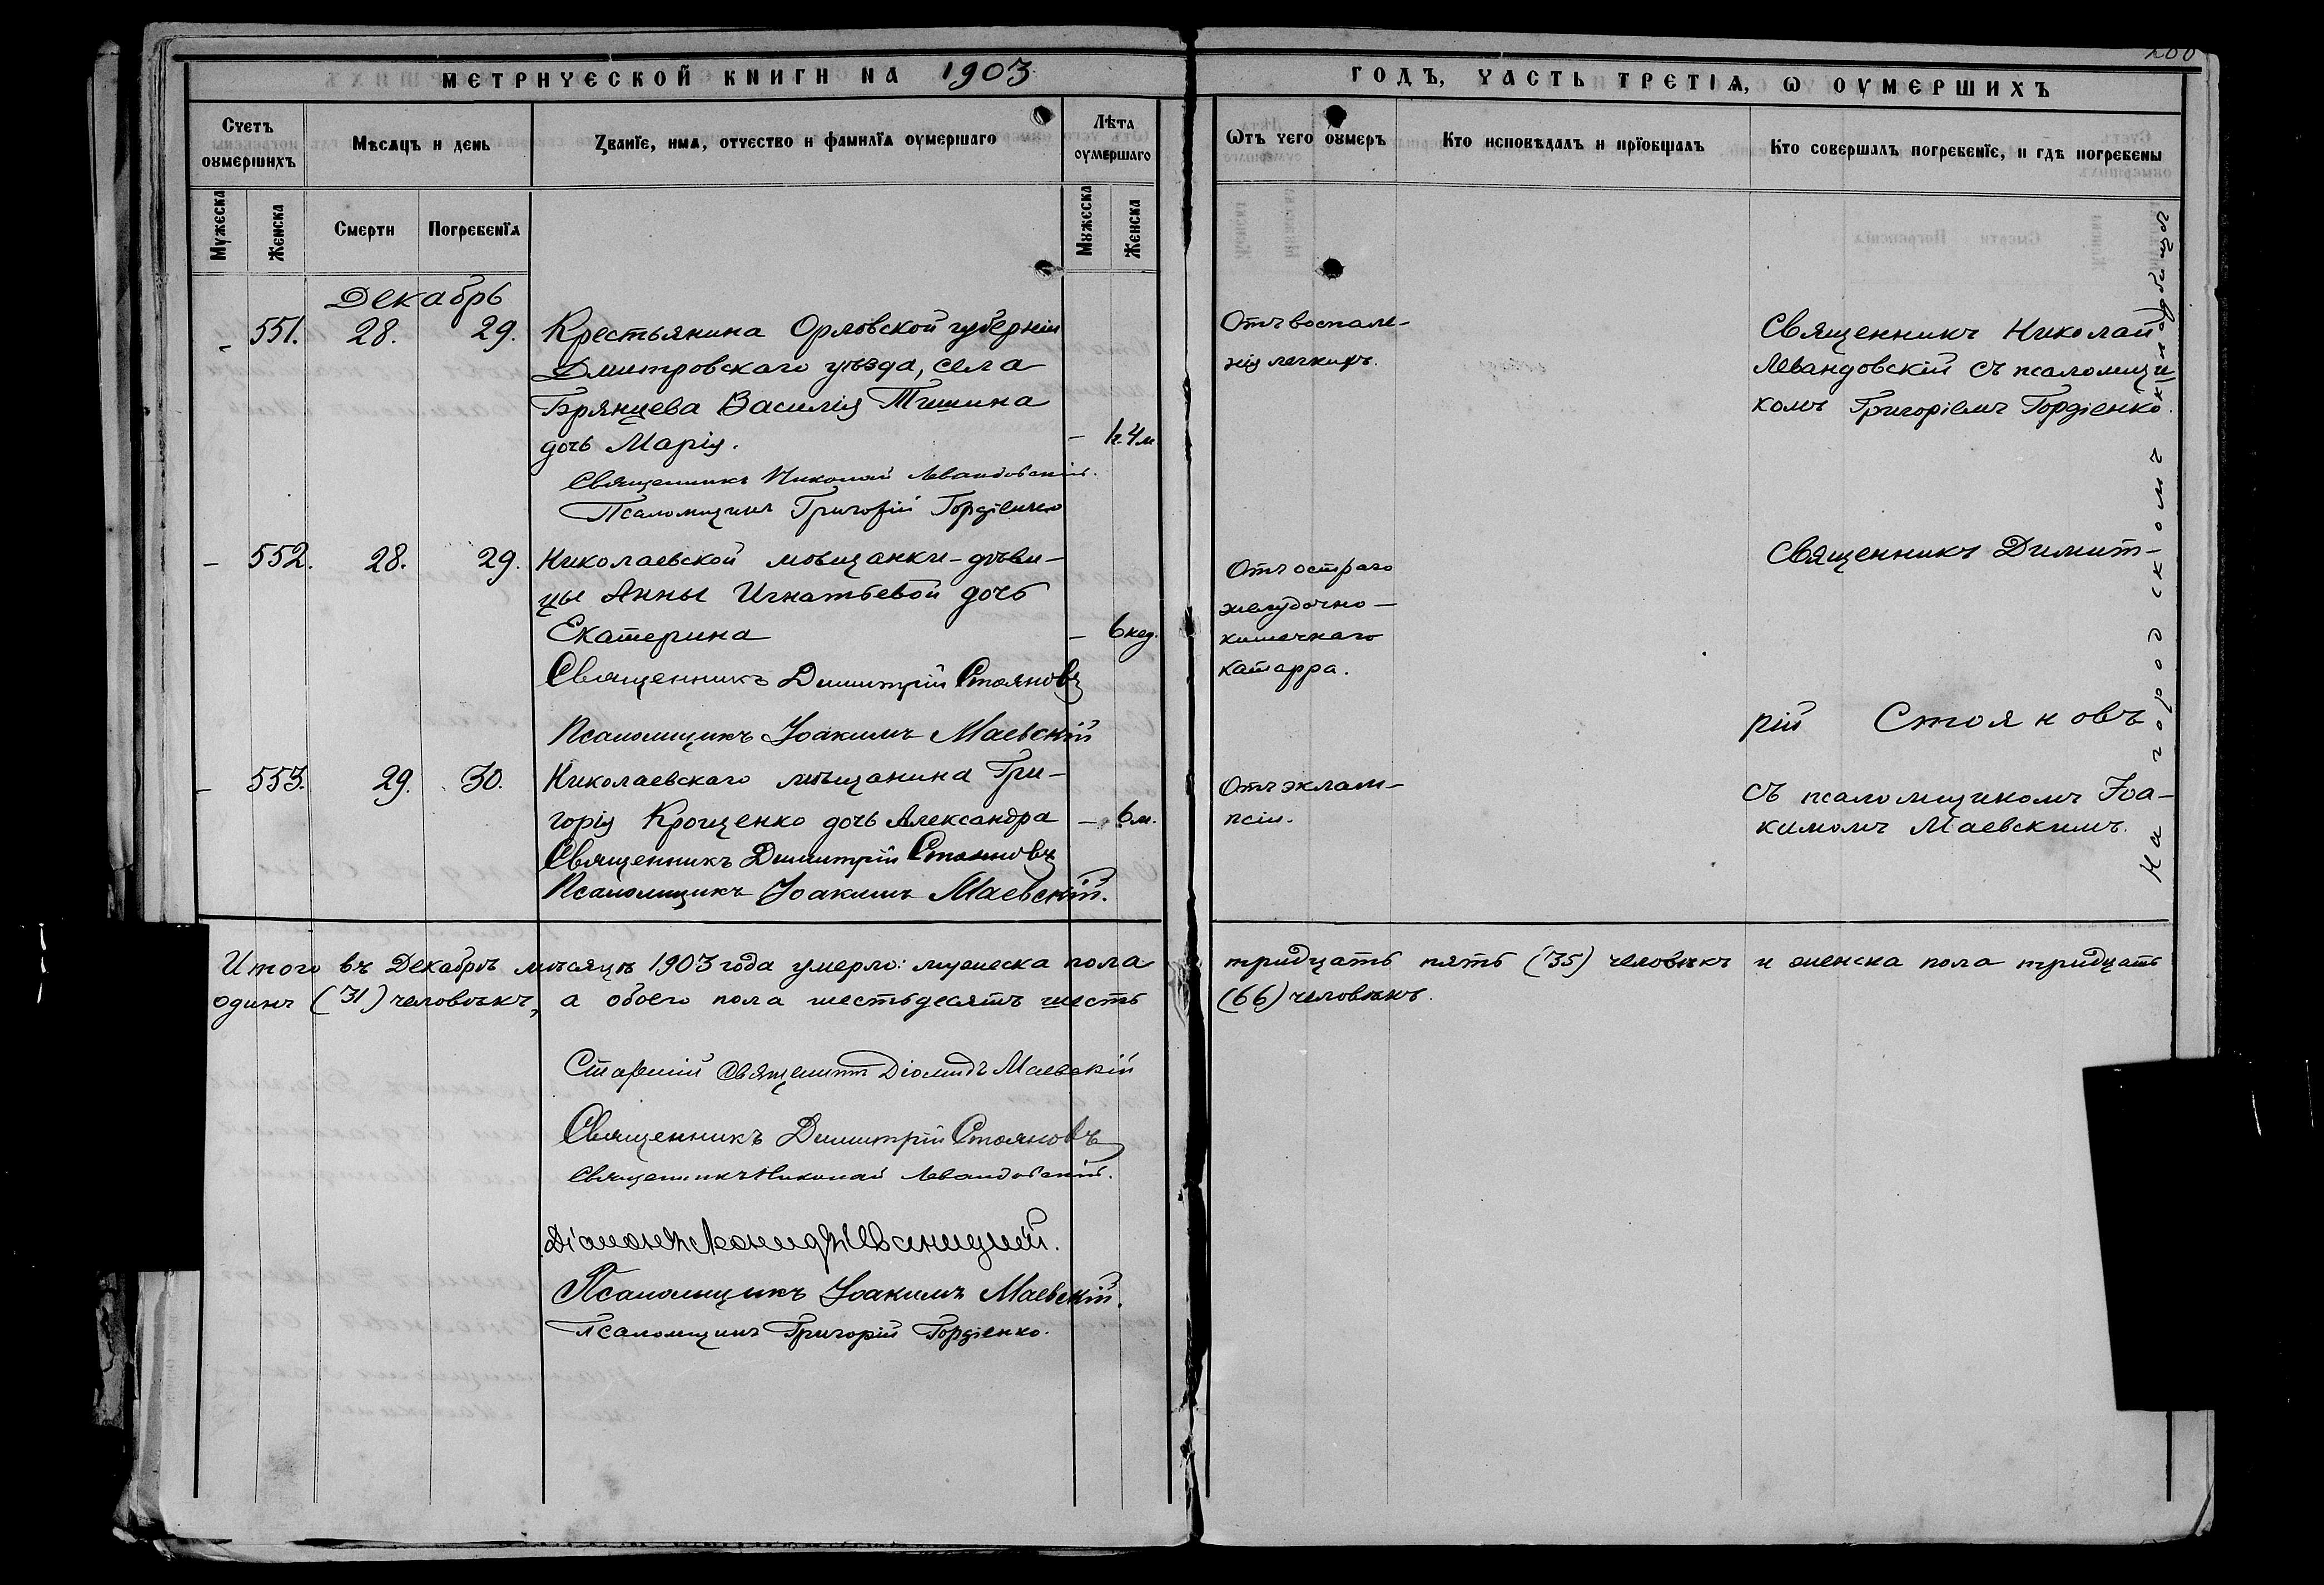 200
МЕТРИЧЕСКОЙ КНИГИ НА 1903
ГОДЪ, ЧАСТЬ ТРЕТІѦ, Ѡ ОУМЕРШИХЪ
Счетъ оумершихъ
Мѣсѧцъ и день
Званїе, имѧ, отчество и фамилїѧ оумершаго
Лѣта оумершаго
Ѿтъ чего оумеръ
Кто исповѣдалъ и прїобщалъ
Кто совершалъ погребенїе, и гдѣ погребены
Мужеска
Женска
Смерти
Погребенїѧ
Мужеска
Женска
Декабрь
- 551. 28. 29. Крестьянина Орловской губерніи
Дмитровскаго уѣзда, села
Брянцева Василія Тишина
дочь Марія. - 1г. 4м
Священникъ Николай Левандовскій.
Псаломщикъ Григорій Гордіенко
Отъ воспале-
нія легкихъ.
Священникъ Николай
Левандовскій съ псаломщи
комъ Григоріемъ Гордіенко.
- 552. 28. 29. Николаевской мѣщанки-дѣви-
цы Анны Игнатьевой дочь
Екатерина - 6 нед.
Священникъ Димитрій Стояновъ
Псаломщикъ Іоакимъ Маевскій
Отъ остраго
желудочно-
кишечнаго
катарра.
Священникъ Димит-
рій Стояновъ
- 553. 29. 30. Николаевскаго мѣщанина Гри-
горія Крощенко дочь Александра - 6 м.
Священникъ Димитрій Стояновъ
Псаломщикъ Іоакимъ Маевскій.
Отъ эклам-
псіи.
съ псаломщикомъ Іоа-
кимомъ Маевскимъ.
На городскомъ кладбищѣ
Итого въ Декабрѣ мѣсяцѣ 1903 года умерло: мужеска пола тридцать пять (35) человѣкъ и женска пола тридцать
одинъ (31) человѣкъ, а обоего пола шестьдесятъ шесть (66) человѣкъ.
Старшій священникъ Діомидъ Маевскій
Священникъ Димитрій Стояновъ
Священникъ Николай Левандовскій.
Діаконъ Леонидъ
Псаломщикъ Іоакимъ Маевскій.
Псаломщикъ Григорій Гордіенко.